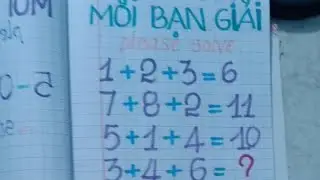 MỜI BẠN GIẢI
please solve
1+2+3=6
7+8+2=11
5+1+4=10
3+4+6=?